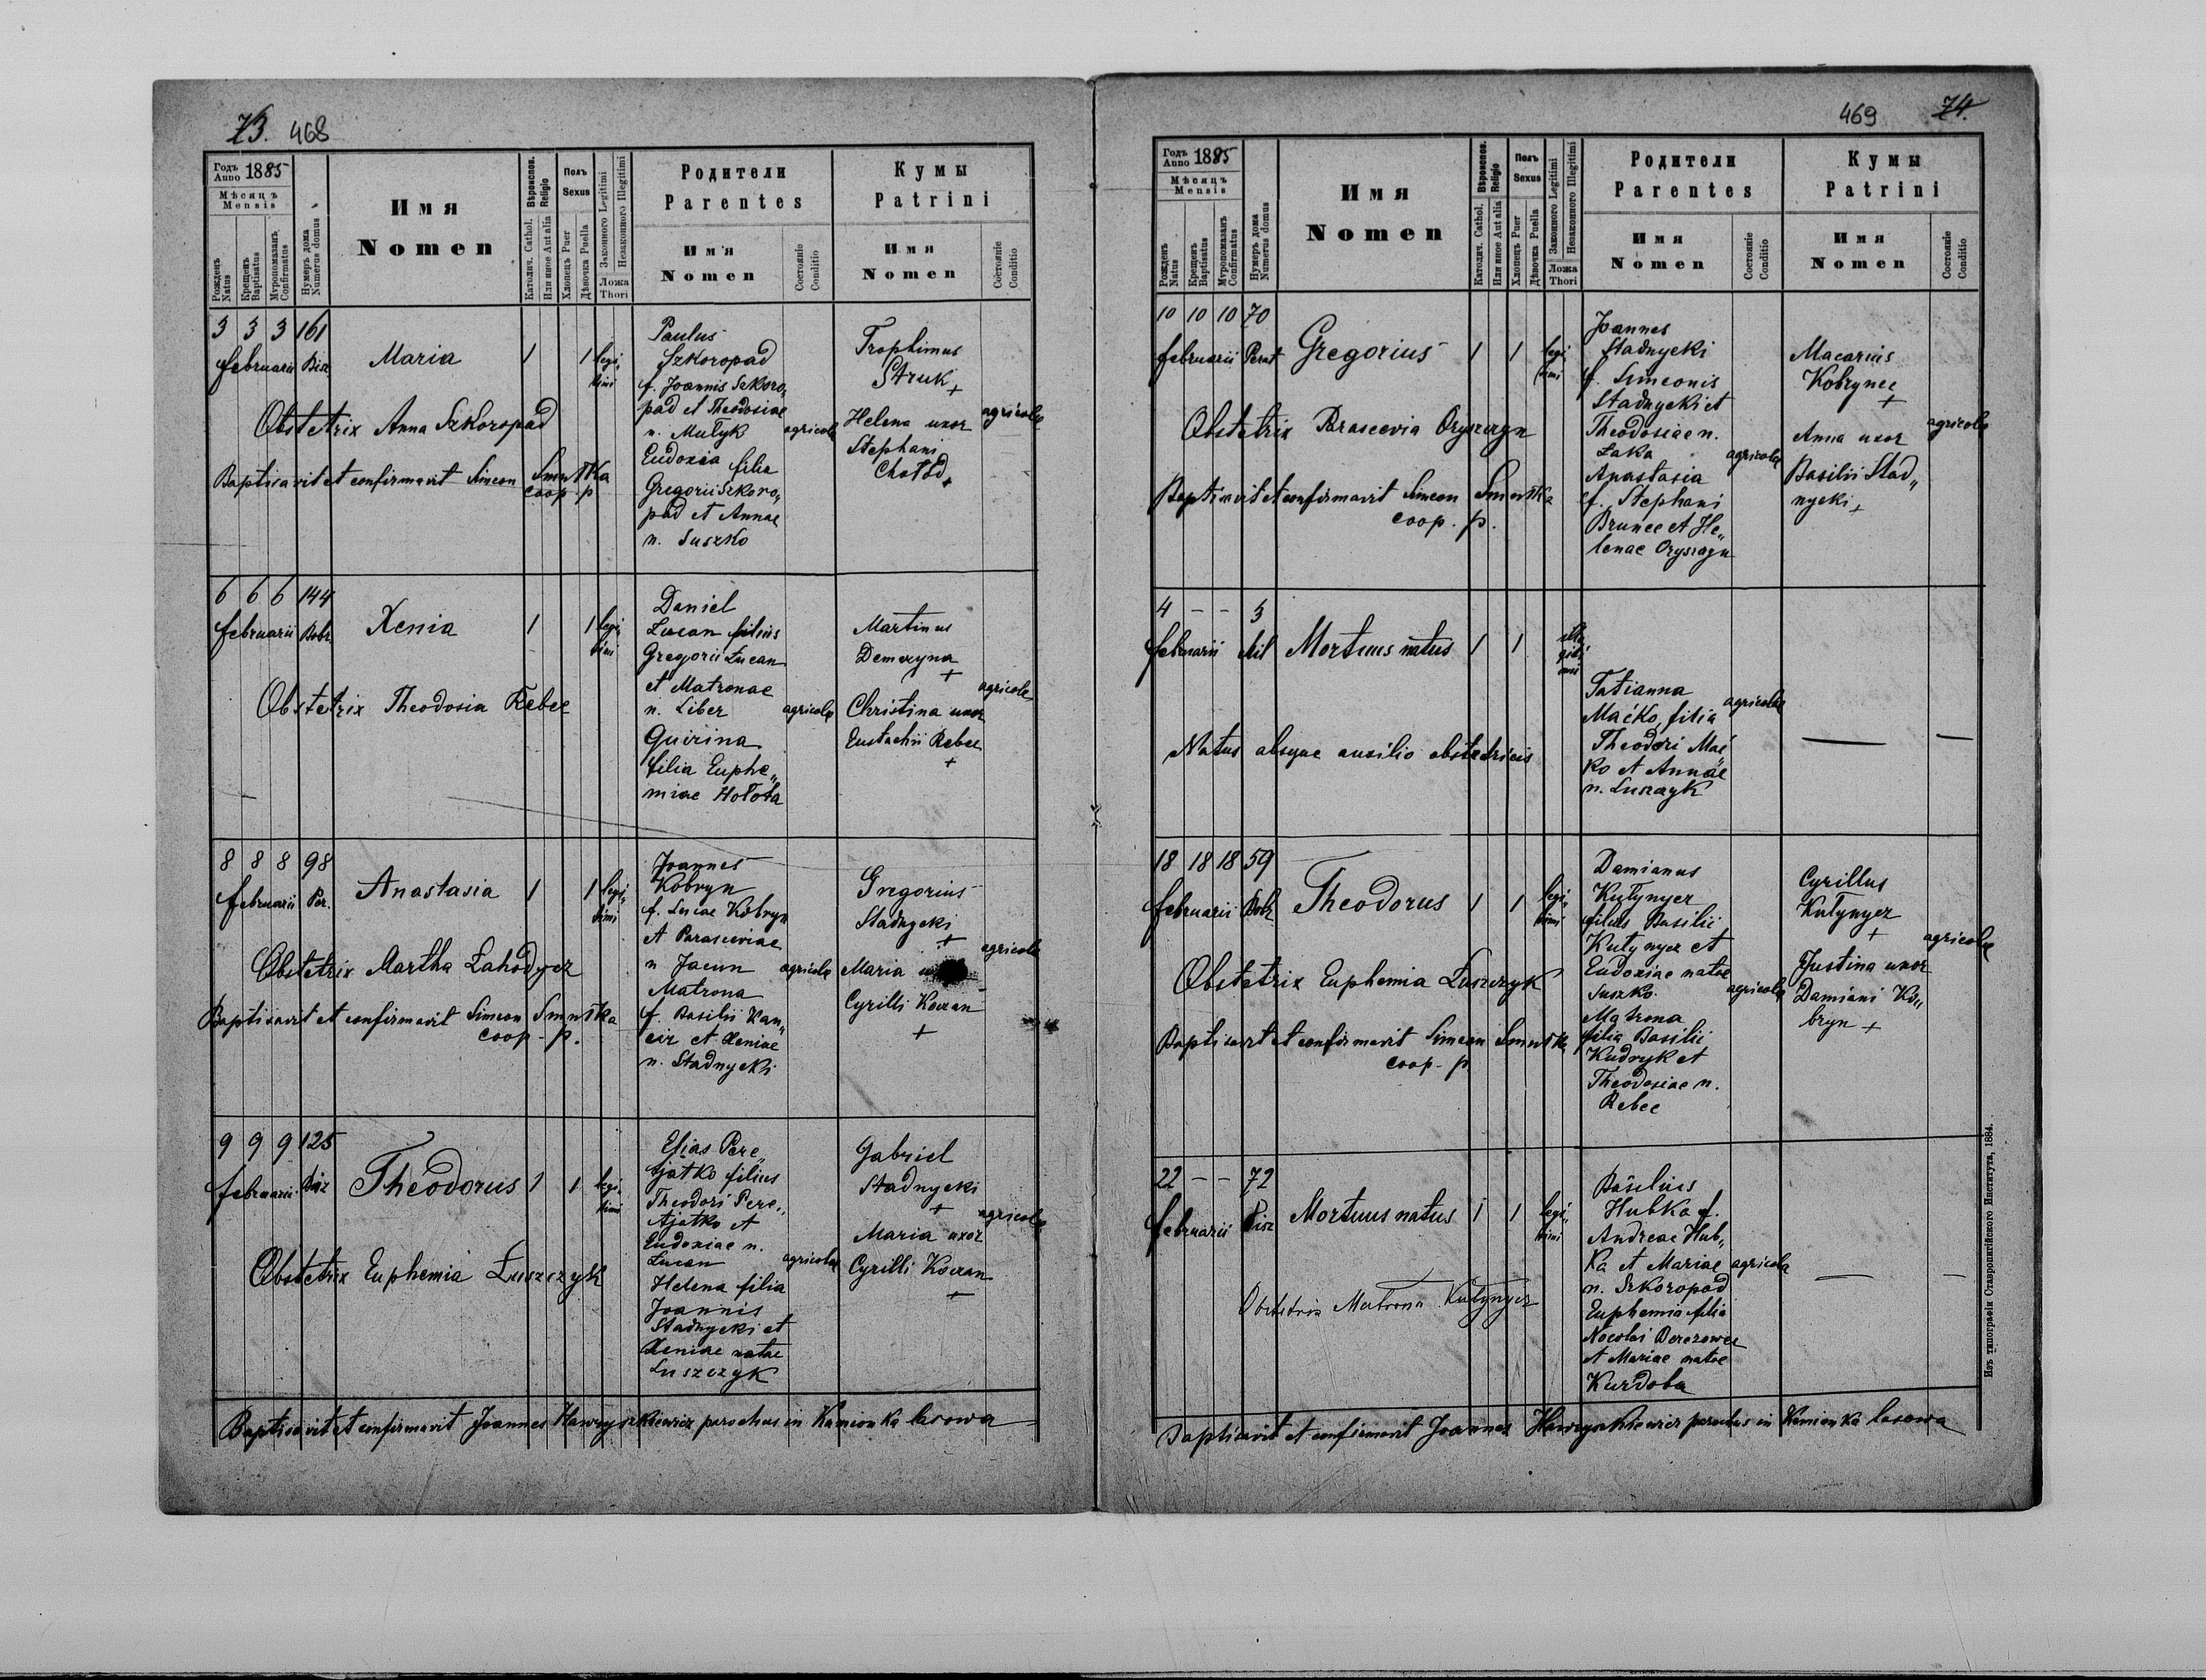 73. 468
Годъ Anno 1885
Мѣсяцъ Mensis
Рожденъ Natus
Крещенъ Baptisatus
Мѵропомазанъ Confirmatus
Нумеръ дома Numerus domus
Имя Nomen
Вѣроиспов. Religio
Католич. Cathol.
Или иное Aut alia
Полъ Sexus
Хлопецъ Puer
Дѣвочка Puella
Законного Legitimi
Незаконного Illegitimi
Ложа Thori
Родители Parentes
Имя Nomen
Состояніе Conditio
Кумы Patrini
Имя Nomen
Состояніе Conditio
3 3 3 161
februarii
Maria 1 1 legi„
timi
Obstetrix Anna Szkoropad
Baptisavit et confirmavit Simeon
coop. p
Paulus
Szkoropad
f. Joannis Szkoro„
pad et Theodosiae
n. Mułyk
Eudoxia filia
Gregorii Szkoro„
pad et Annae
n. Suszko
agricola
Trophimus
Struk +
Helena uxor
Stephani
Chołod +
agricola
6 6 6 144
februarii Bobr.
Xenia 1 1 legi„
timi
Obstetrix Theodosia Rebec
Daniel
Lucan filius
Gregorii Lucan
et Matronae
n. Liber
Quirina
filia Euphe„
miae Hołota
agricola
Martinus
Demczyna
+
Christina uxor
Eustachii Rebec
+
agricola
8 8 8 98
februarii Per.
Anastasia 1 1 legi„
timi
Obstetrix Martha Łahodycz
Baptisavit et confirmavit Simeon
coop. p.
Joannes
Kobryn
f. Lucae Kobryn
et Parasceviae
n Jacun
Matrona
f. Basilii Kan„
cir et Xeniae
n. Stadnycki
agricola
Gregorius
Stadnycki
+
Maria
Cyrilli Koczan
+
agricola
9 9 9 125
februarii
Theodorus 1 1 legi„
timi
Obstetrix Euphemia Łuszczyk
Elias Pere„
tjatko filius
Theodori Pere„
tjatko et
Eudoxiae n.
Lucan
Helena filia
Joannis
Stadnycki et
Xeniae natae
Łuszczyk
agricola
Gabriel
Stadnycki
+
Maria uxor
Cyrilli Koczan
+
agricola
Baptisavit et confirmavit Joannes Hawryszkiewicz parochus in Kamionka lasowa
469 74.
Годъ Anno 1885
Мѣсяцъ Mensis
Рожденъ Natus
Крещенъ Baptisatus
Мѵропомазанъ Confirmatus
Нумеръ дома Numerus domus
Имя Nomen
Вѣроиспов. Religio
Католич. Cathol.
Или иное Aut alia
Полъ Sexus
Хлопецъ Puer
Дѣвочка Puella
Законного Legitimi
Незаконного Illegitimi
Ложа Thori
Родители Parentes
Имя Nomen
Состояніе Conditio
Кумы Patrini
Имя Nomen
Состояніе Conditio
10 10 10 70
februarii
Gregorius 1 1 legi„
timi
Obstetrix Oryszczyn
Baptisavit et confirmavit Simeon
coop. p.
Joannes
Stadnycki
f. Simeonis
Stadnycki et
Theodosiae n.
Łaka
Anastasia
f. Stephani
Brunec et He„
lenae Oryszczyn
agricola
Macarius
Kobrynec
+
Anna uxor
Basilii Stad„
nycki +
agricola
4 - - 3
februarii Mil
Mortuus natus 1 1
Natus absque auxilio obstetricis
Tatianna
Maćko, filia
Theodori Mać„
ko et Annae
n. Łuszczyk
agricola
18 18 18 59
februarii Bobr
Theodorus 1 1 legi„
timi
Obstetrix Euphemia Łuszczyk
Baptisavit et confirmavit Simeon
coop. p
Damianus
Kutynycz
filius Basilii
Kutynycz et
Eudoxiae natae
Suszko.
Matrona
filia Basilii
Kudryk et
Theodosiae n.
Rebec
agricola
Cyrillus
Kutynycz
+
Justina uxor
Damiani Ko„
bryn +
agricola
22 - - 72
februarii
Mortuus natus 1 1 legi„
timi
Obstetrix Matrona Kutynycz
Basilius
Hubka f.
Andreae Hub„
ka et Mariae
n. Szkoropad
Euphemia filia
Nocolai Berezowec
et Mariae natae
Kurdoba
agricola
Baptisavit et confirmavit Joannes Hawryszkiewicz parochus in Kamionka lasowa
Изъ типографіи Ставропигійского Института, 1884.